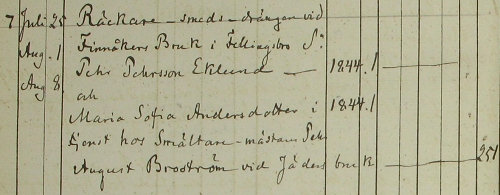 7 Juli 25 Räckare-smeds-drängen vid
Aug. 1 Finnåkers Bruk i Fellingsbro S:
Aug 8 Pehr Pehrsson Eklund — 1844./
och
Maria Sofia Andersdotter i 1844./
tjenst hos Smältare-mästaren Pehr
August Broström vid Jäders bruk 251